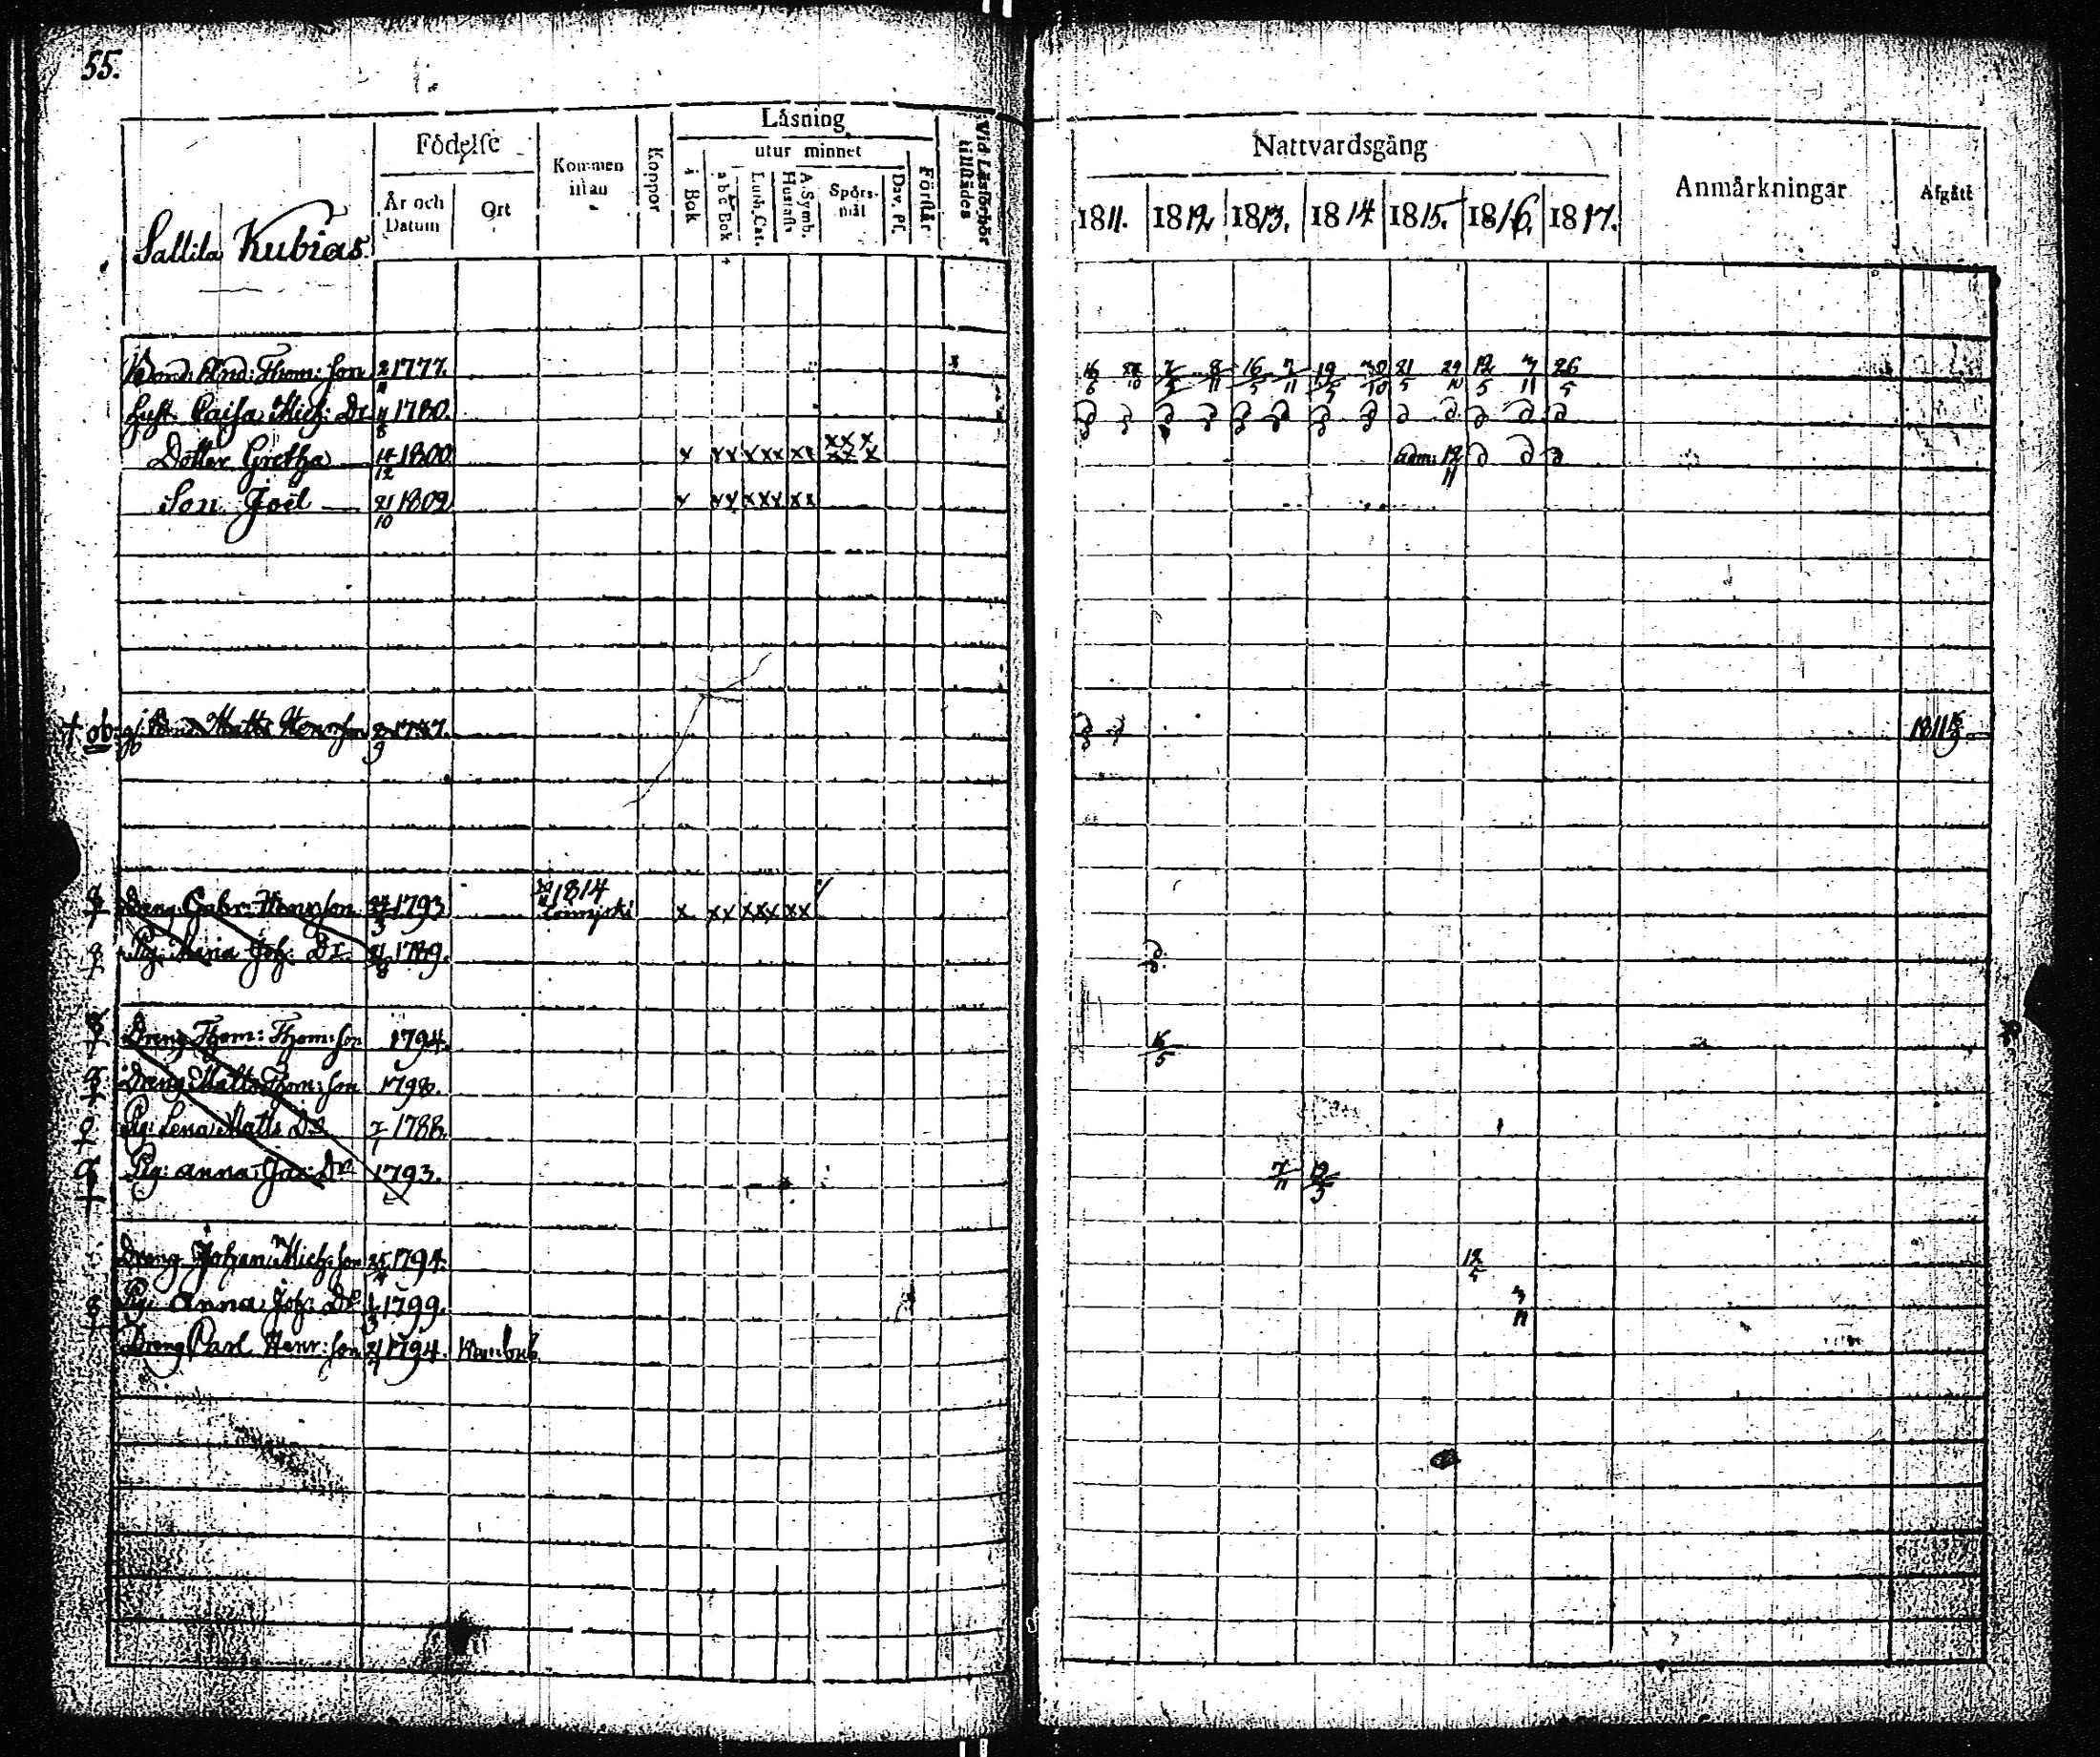 55.
Sallila Kubias.
Födelse
År och Datum
Ort
Kommen ifrån
Koppor
Läsning
i Bok
utur minnet
a b c Bok
Luth. Cat.
Hustafl.
A. Symb.
Spörs-mål
Dav. Ps.
Förstår
Vid Läsförhör tillstädes
Nattvardsgång
1811. 1812 1813. 1814 1815. 1816. 1817.
Anmärkningar
Afgått
Bond: And: Thom: Son 1777. x 16/6 7/5 8/11 16/5 7/11 19/5 30/10 21/5 29/10 12/5 3/11 26/5
Hust. Caisa Mich: Dr 1780.
Dotter Gretha 14/12 1800. x xx xxx xx xxx xxx adm: 12/11
Son Joël 21/10 1802 x xx xxx xx
ob: Matts Henr: Son 1811
Dreng Gabr: Henr: Son 1793 1814 x xx xxx xx
Pig. Maria Joh: Dr 1789.
Dreng Thom: Thom: Son 1794. 16/5
Dreng Matts Thom: Son 1798.
Pig: Lena Matts Dr 7/1 1788.
Pig: Anna Dr 1793. 7/11 19/5
Dreng Johan Mich: Son 1794. 12/5
Pig. Anna Joh: Dr 1/3 1799. 3/11
Dreng Carl Henr: Son 1794.